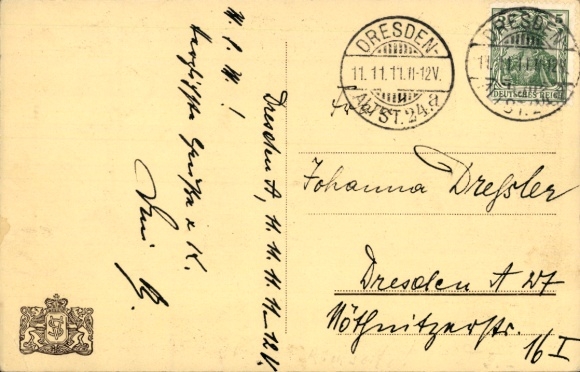 W. S. M.!
Herzliche Grüße u. K.
Dresden A, 11. 11. 11 11-12 V.
DRESDEN-
11.11.11.11-12V.
ALTST. 24.a
DRESDEN-
ALTST. 24.
5
DEUTSCHES REICH
Johanna Dreßler
Dresden A 27
Nöthnitzerstr.
16 I